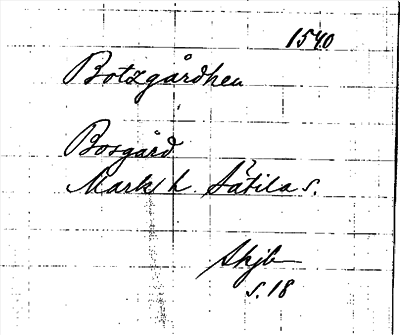 1540
Botzgårdhen
Bosgård
Mark h. Sätila s.
Skjb
s. 18